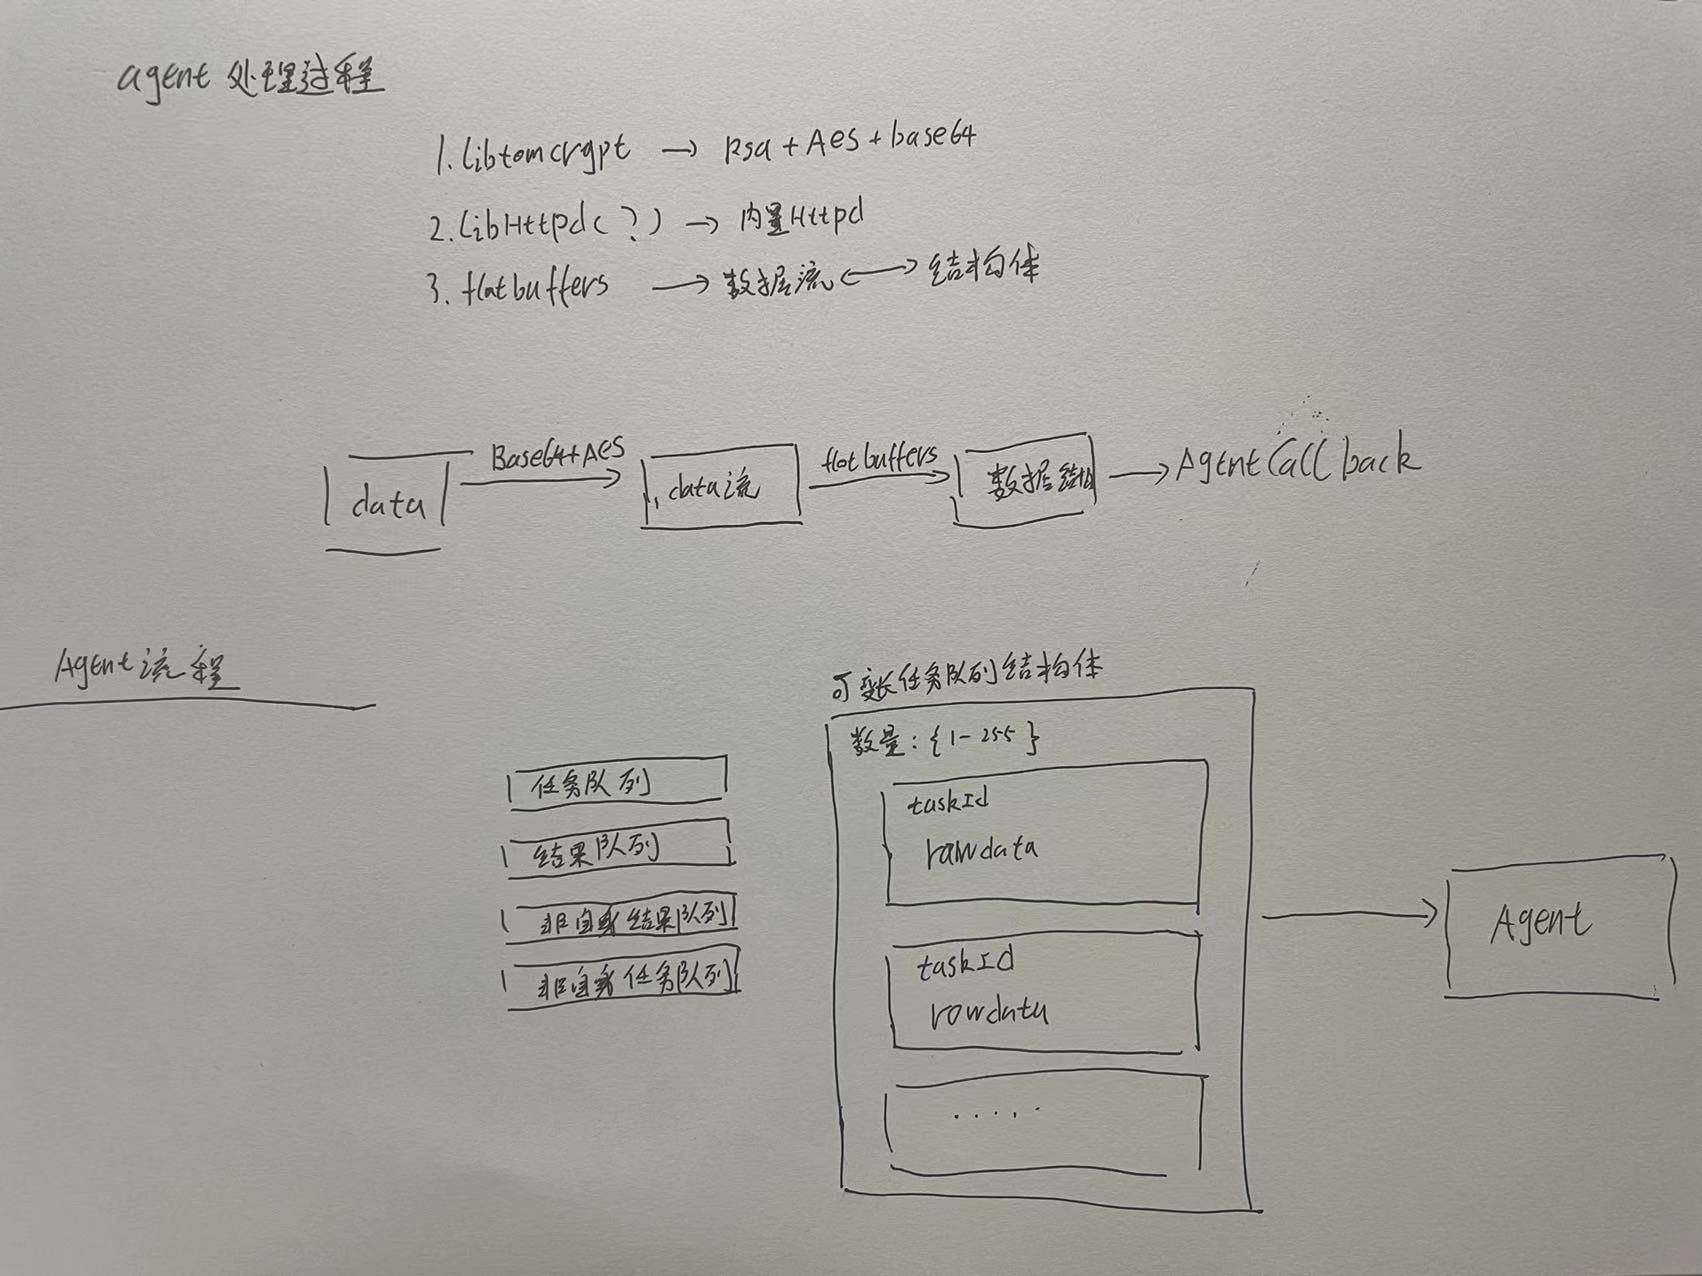 agent 处理过程
1. Libtomcrypt → Rsa + Aes + base64
2. LibHttpd(?) → 内置Httpd
3. flatbuffers → 数据流 ↔ 结构体
data
Base64+AES
data流
flatbuffers
数据结构
→ AgentCallback
Agent流程
任务队列
结果队列
非自身结果队列
非自身任务队列
可变长任务队列结构体
数量:{1-255}
taskId
rawdata
taskId
rowdata
.....
Agent